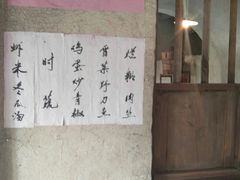 烂糊肉丝
雪菜野刀鱼
鸡蛋炒青椒
时蔬
虾米冬瓜汤